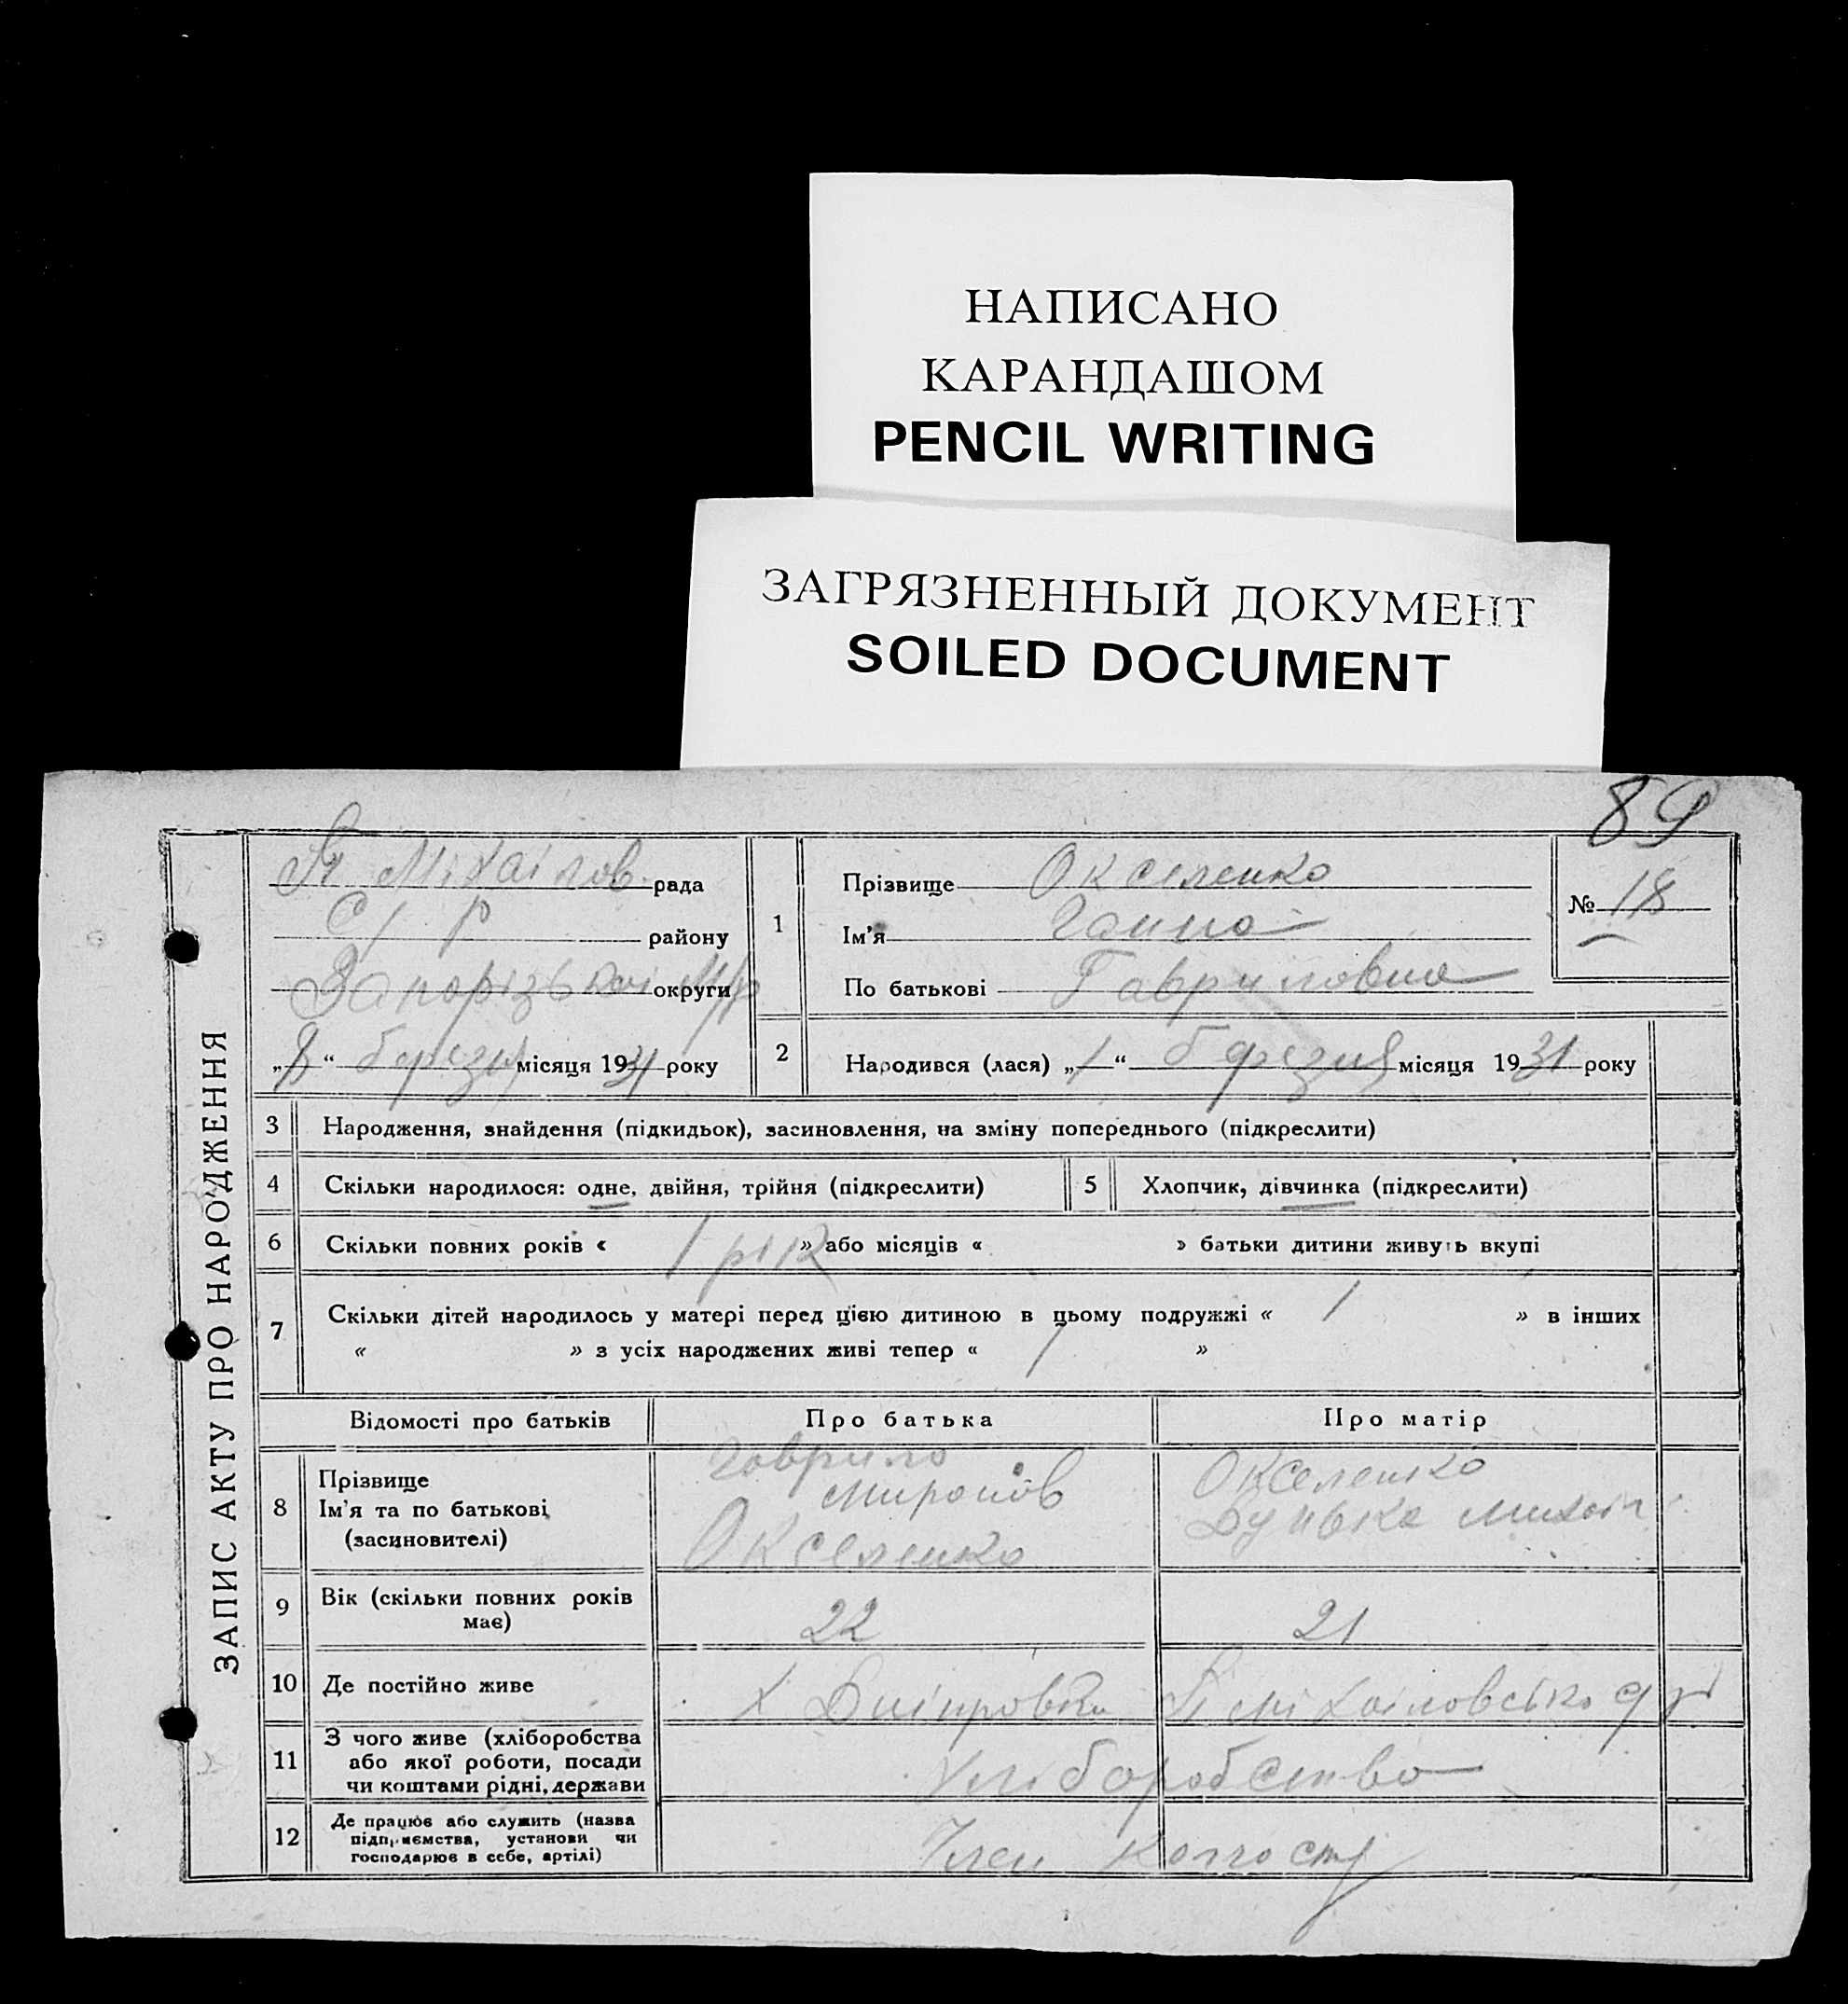 НАПИСАНО
КАРАНДАШОМ
PENCIL WRITING
ЗАГРЯЗНЕННЫЙ ДОКУМЕНТ
SOILED DOCUMENT
89
ЗАПИС АКТУ ПРО НАРОДЖЕННЯ
Міхаілов. рада
С/Р району
Запорізької округи
„8“ березня місяця 1931 року
1
Прізвище Окселенко
Ім’я Ганна
По батькові Гавриловна
№ 18
2 Народився (лася) „1“ березня місяця 1931 року
3 Народження, знайдення (підкидьок), засиновлення, на зміну попереднього (підкреслити)
4 Скільки народилося: одне, двійня, трійня (підкреслити) 5 Хлопчик, дівчинка (підкреслити)
6 Скільки повних років « 1 рік » або місяців « » батьки дитини живуть вкупі
7 Скільки дітей народилось у матері перед цією дитиною в цьому подружжі « 1 » в інших
« » з усіх народжених живі тепер « 1 »
Відомості про батьків Про батька Про матір
8 Прізвище
Ім’я та по батькові
(засиновителі)
Гаврило
Миронов
Окселенко
Окселенко
Дунька Михаіл
9 Вік (скільки повних років
має) 22 21
10 Де постійно живе Х Дніпровка Міхаіловсько
11 З чого живе (хліборобства
або якої роботи, посади
чи коштами рідні, держави
Хліборобство
12 Де працює або служить (назва
підприємства, установи чи
господарює в себе, артілі)
Член колгоспу